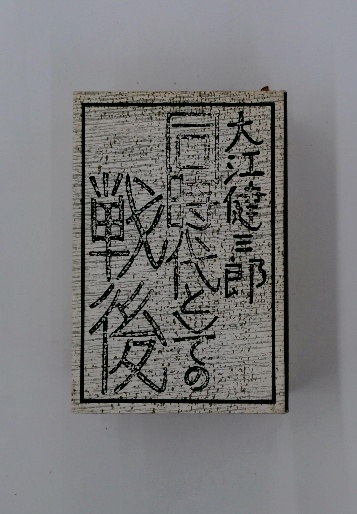 大江健三郎
同時代としての
戦後